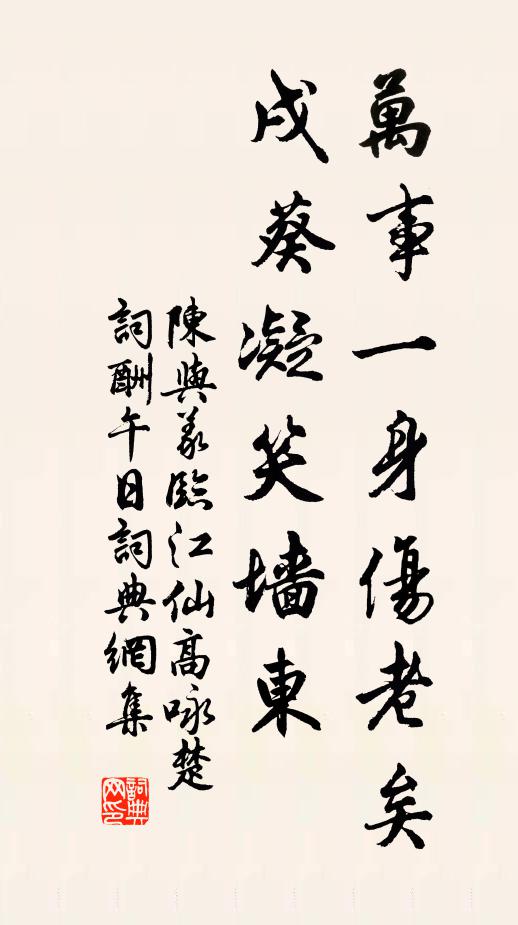 萬事一身傷老矣
戌葵凝笑墻東
陳與義臨江仙高咏楚
詞酬午日詞典網集
詞典网印